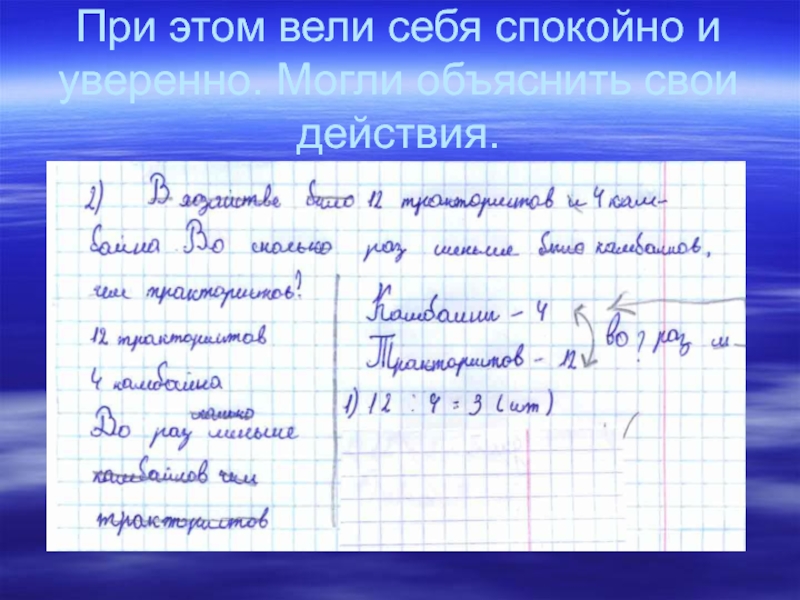 При этом вели себя спокойно и
уверенно. Могли объяснить свои
действия.
2) В хозяйстве было 12 трактористов и 4 кам-
байна Во сколько раз меньше было камбайнов,
чем трактористов?
12 трактористов
4 камбайна
сколько
Во раз меньше
камбайнов чем
трактористов
Камбайни - 4
Трактористов - 12
во ? раз м
1) 12 : 4 = 3 (шт)